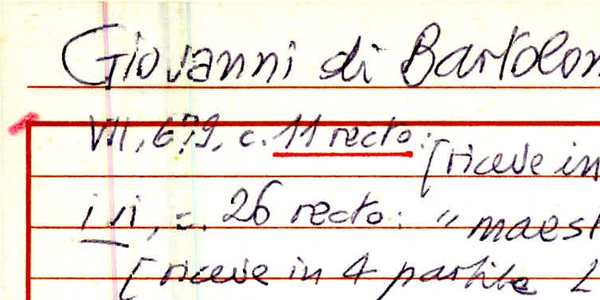 Giovanni di Bartolom
VII, 679, c. 11 recto: [riceve in
ivi, c. 26 recto: "maest
[riceve in 4 partite L